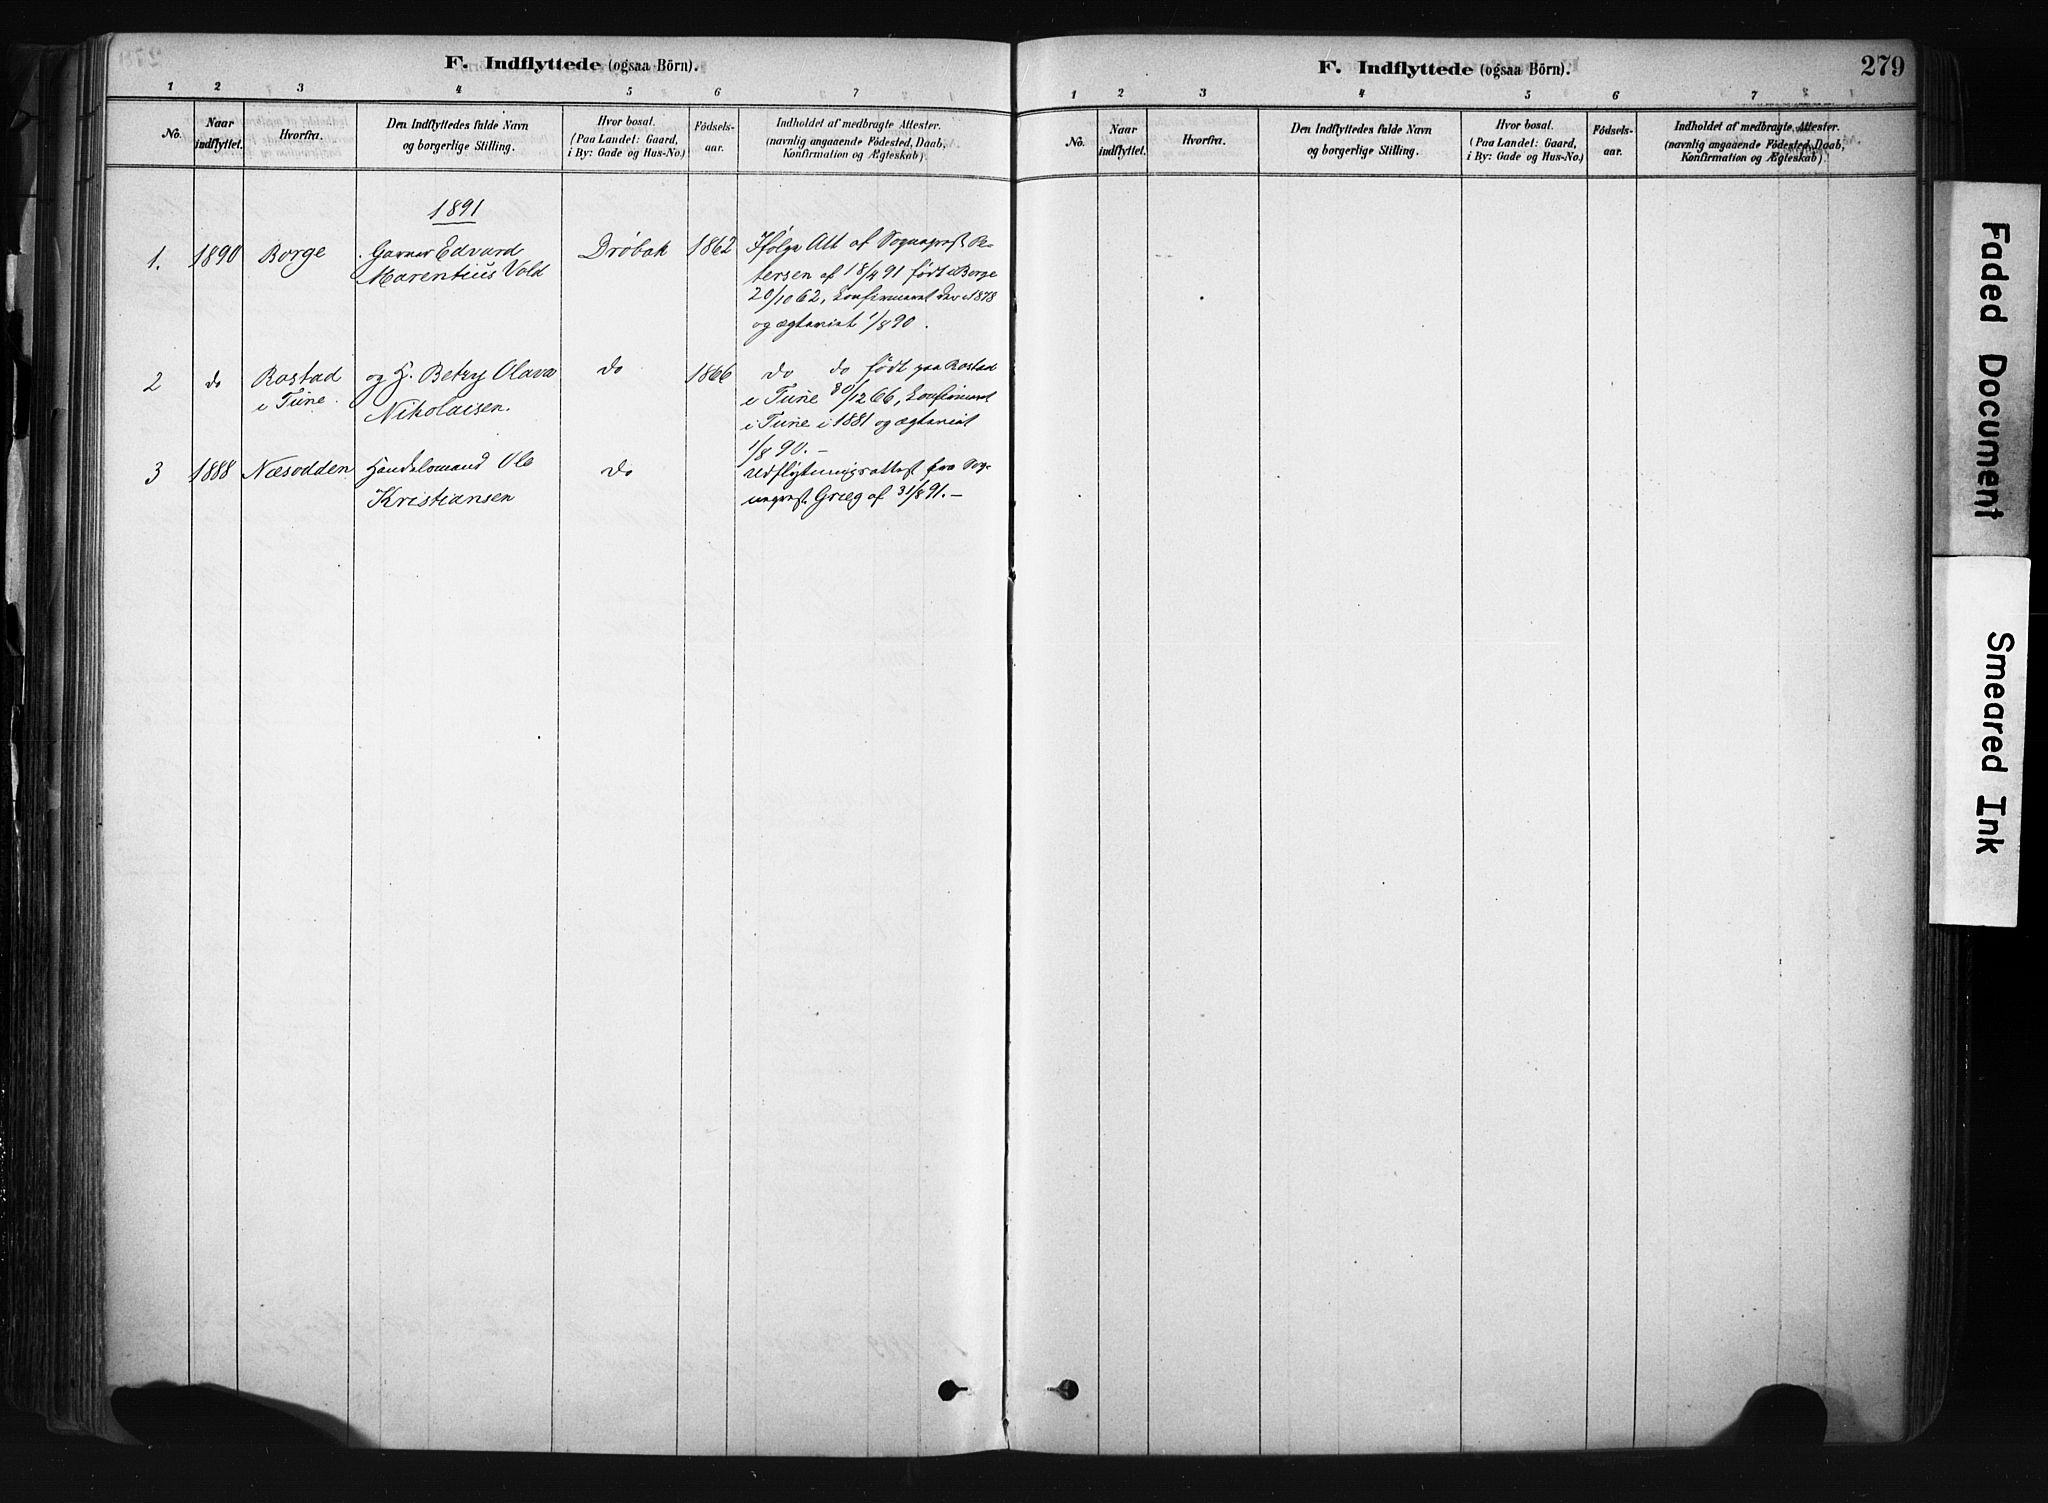 F. Indflyttede (ogsaa Börn).
1 2 3 4 5 6 7
No. Naar indflyttet. Hvorfra. Den Indflyttedes fulde Navn og borgerlige Stilling. Hvor bosat. (Paa Landet: Gaard, i By: Gade og Hus-No.) Födselsaar. Indholdet af medbragte Attester. (navnlig angaaende Födested, Daab, Konfirmation og Ægteskab).
1891
1. 1890 Borge Garver Edvard Drøbak 1862 Ifølge Att af Sogneprest Pe-
Marentius Vold tersen af 18/4 91 født i Borge
20/10 62, konfirmeret der i 1878
og ægteviet 1/8 90.
2 do Rostad og H. Betzy Olava do 1866 do do født paa Rostad
i Tune Nikolaisen. i Tune 30/12 66, konfirmeret
i Tune i 1881 og ægteviet
1/8 90. –
3 1888 Næsodden Handelsmand Ole do Udflytningsattest fra Sog-
Kristiansen neprest Grieg af 31/8 91. –
F. Indflyttede (ogsaa Börn).
279
1 2 3 4 5 6 7
No. Naar indflyttet. Hvorfra. Den Indflyttedes fulde Navn og borgerlige Stilling. Hvor bosat. (Paa Landet: Gaard, i By: Gade og Hus-No.) Födselsaar. Indholdet af medbragte Attester. (navnlig angaaende Födested, Daab, Konfirmation og Ægteskab).
Faded Document
Smeared Ink